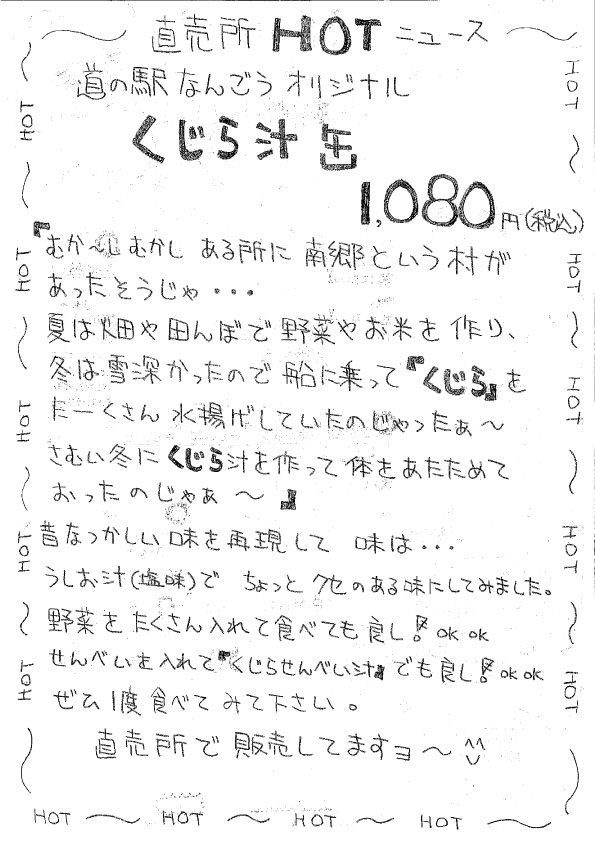 直売所 HOT ニュース
道の駅なんごう オリジナル
くじら汁 缶
1,080円(税込)
『むか〜しむかし ある所に 南郷という村が
あったそうじゃ・・・
夏は畑や田んぼで野菜やお米を作り、
冬は雪深かったので船に乗って『くじら』を
たーくさん水揚げしていたのじゃったぁ〜
さむい冬にくじら汁を作って体をあたためて
おったのじゃぁ〜』
昔なつかしい味を再現して 味は・・・
うしお汁(塩味)で ちょっとクセのある味にしてみました。
野菜をたくさん入れて食べても良し! OK OK
せんべいを入れて『くじらせんべい汁』でも良し! OK OK
ぜひ1度食べてみて下さい。
直売所で販売してますヨ〜^^
HOT
HOT
HOT
HOT
HOT
HOT
HOT
HOT
HOT
HOT
HOT 〜 HOT 〜 HOT 〜 HOT 〜